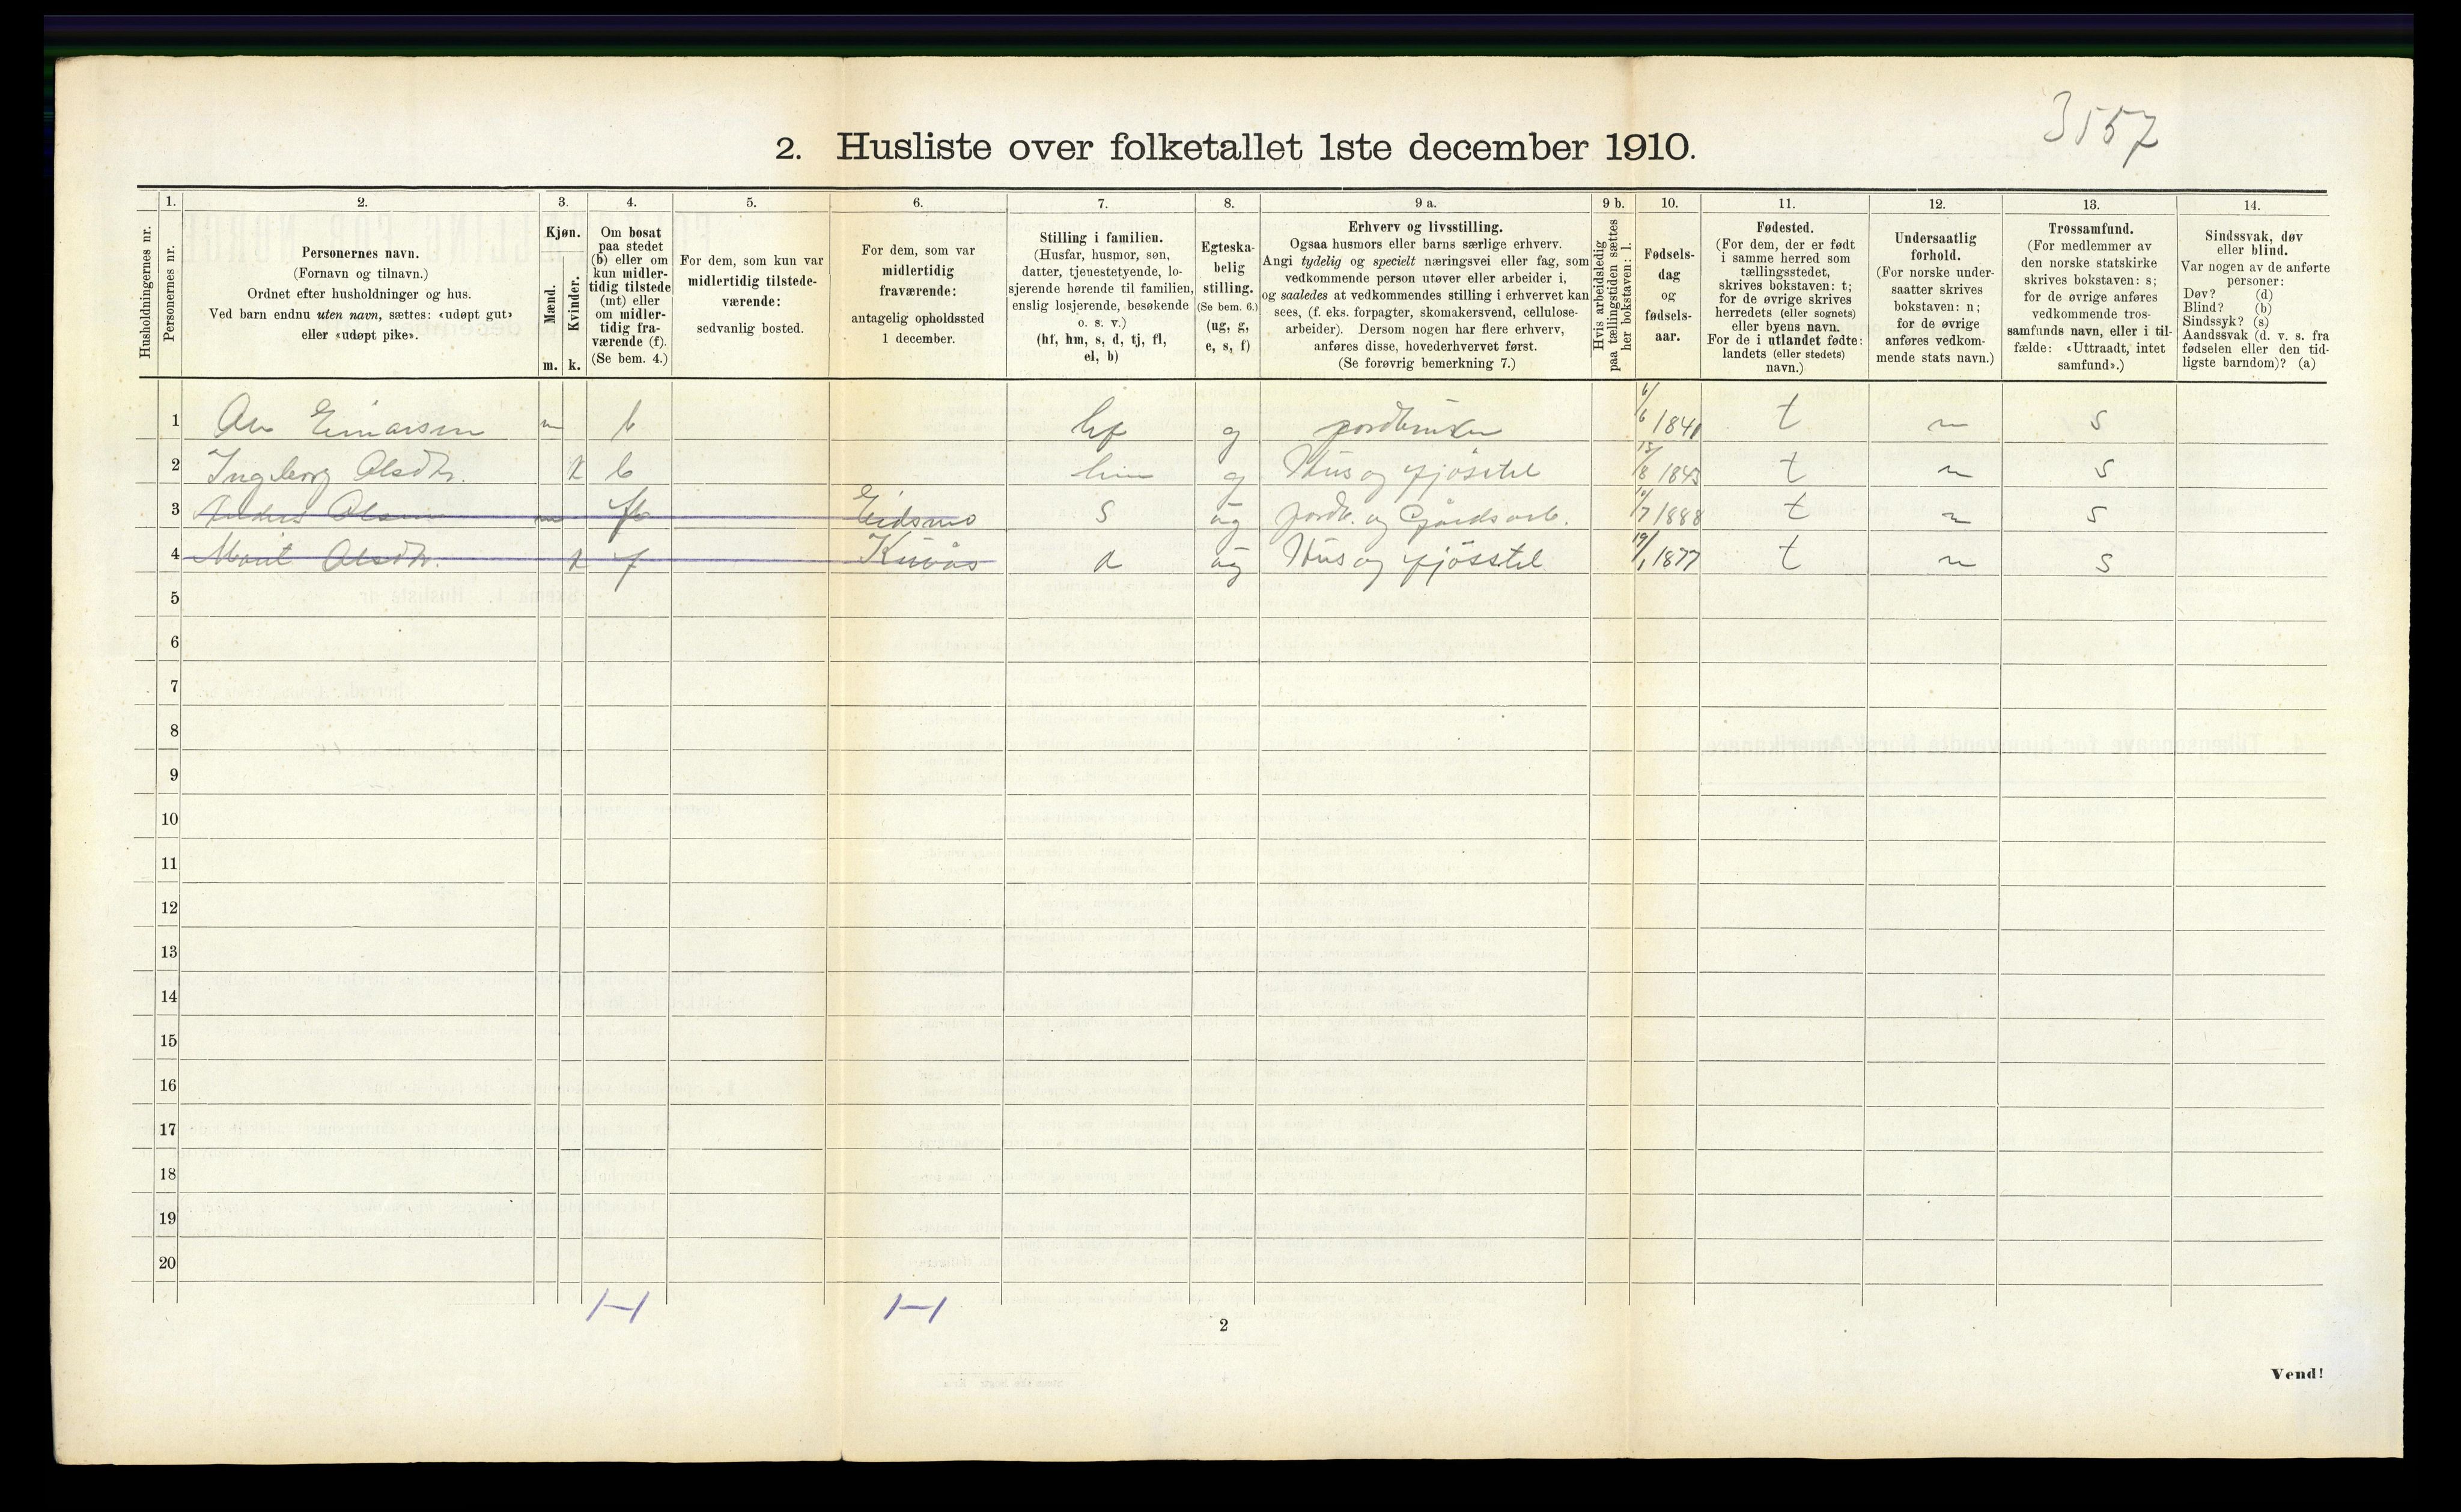 3557
2. Husliste over folketallet 1ste december 1910.
Husholdningernes nr.
1.
Personernes nr.
2.
Personernes navn.
(Fornavn og tilnavn.)
Ordnet efter husholdninger og hus.
Ved barn endnu uten navn, sættes: «udøpt gut»
eller «udøpt pike».
3.
Kjøn.
Mænd.
Kvinder.
m. k.
4.
Om bosat
paa stedet
(b) eller om
kun midler-
tidig tilstede
(mt) eller
om midler-
tidig fra-
værende (f).
(Se bem. 4.)
5.
For dem, som kun var
midlertidig tilstede-
værende:
sedvanlig bosted.
6.
For dem, som var
midlertidig
fraværende:
antagelig opholdssted
1 december.
7.
Stilling i familien.
(Husfar, husmor, søn,
datter, tjenestetyende, lo-
sjerende hørende til familien,
enslig losjerende, besøkende
o. s. v.)
(hf, hm, s, d, tj, fl,
el, b)
8.
Egteska-
belig
stilling.
(Se bem. 6.)
(ug, g,
e, s, f)
9 a.
Erhverv og livsstilling.
Ogsaa husmors eller barns særlige erhverv.
Angi tydelig og specielt næringsvei eller fag, som
vedkommende person utøver eller arbeider i,
og saaledes at vedkommendes stilling i erhvervet kan
sees, (f. eks. forpagter, skomakersvend, cellulose-
arbeider). Dersom nogen har flere erhverv,
anføres disse, hovederhvervet først.
(Se forøvrig bemerkning 7.)
9 b.
Hvis arbeidsledig
paa tællingstiden sættes
her bokstaven: l.
10.
Fødsels-
dag
og
fødsels-
aar.
11.
Fødested.
(For dem, der er født
i samme herred som
tællingsstedet,
skrives bokstaven: t;
for de øvrige skrives
herredets (eller sognets)
eller byens navn.
For de i utlandet fødte:
landets (eller stedets)
navn.)
12.
Undersaatlig
forhold.
(For norske under-
saatter skrives
bokstaven: n;
for de øvrige
anføres vedkom-
mende stats navn.)
13.
Trossamfund.
(For medlemmer av
den norske statskirke
skrives bokstaven: s;
for de øvrige anføres
vedkommende tros-
samfunds navn, eller i til-
fælde: «Uttraadt, intet
samfund».)
14.
Sindssvak, døv
eller blind.
Var nogen av de anførte
personer:
Døv? (d)
Blind? (b)
Sindssyk? (s)
Aandssvak (d. v. s. fra
fødselen eller den tid-
ligste barndom)? (a)
1 Einarsen m b hf g jordbruker 6/6 1841 t n s
2 Ingeborg Olsdtr. k b hm g Hus og fjösstel 15/8 1843 t n s
3 Anders Olsen m f Eidsmo s ug jordb. og Gårdsarb. /7 1888 t n s
4 Marit Olsdtr. k f Kuvås d ug Hus og fjösstel 19/1 1877 t n s
5
6
7
8
9
10
11
12
13
14
15
16
17
18
19
20
1-1 1-1
2
Vend!